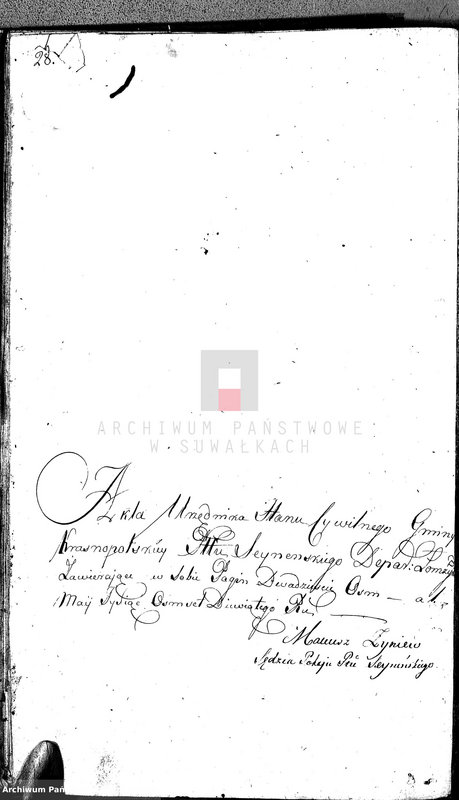 28.
ARCHIWUM PAŃSTWOWE
W SUWAŁKACH
Akta Urzędnika Stanu Cywilnego Gminy
Krasnopolskiey Pttu Seynenskiego Depar: Łomzyń
Zawieraiące w sobie Pagin Dwadzieścia Osm —
Maij Tysiąc Osmset Dziewiątego Ru
Mateusz Zyniew
Sędzia Pokoju Ptu Seynenskiego
Archiwum Pań